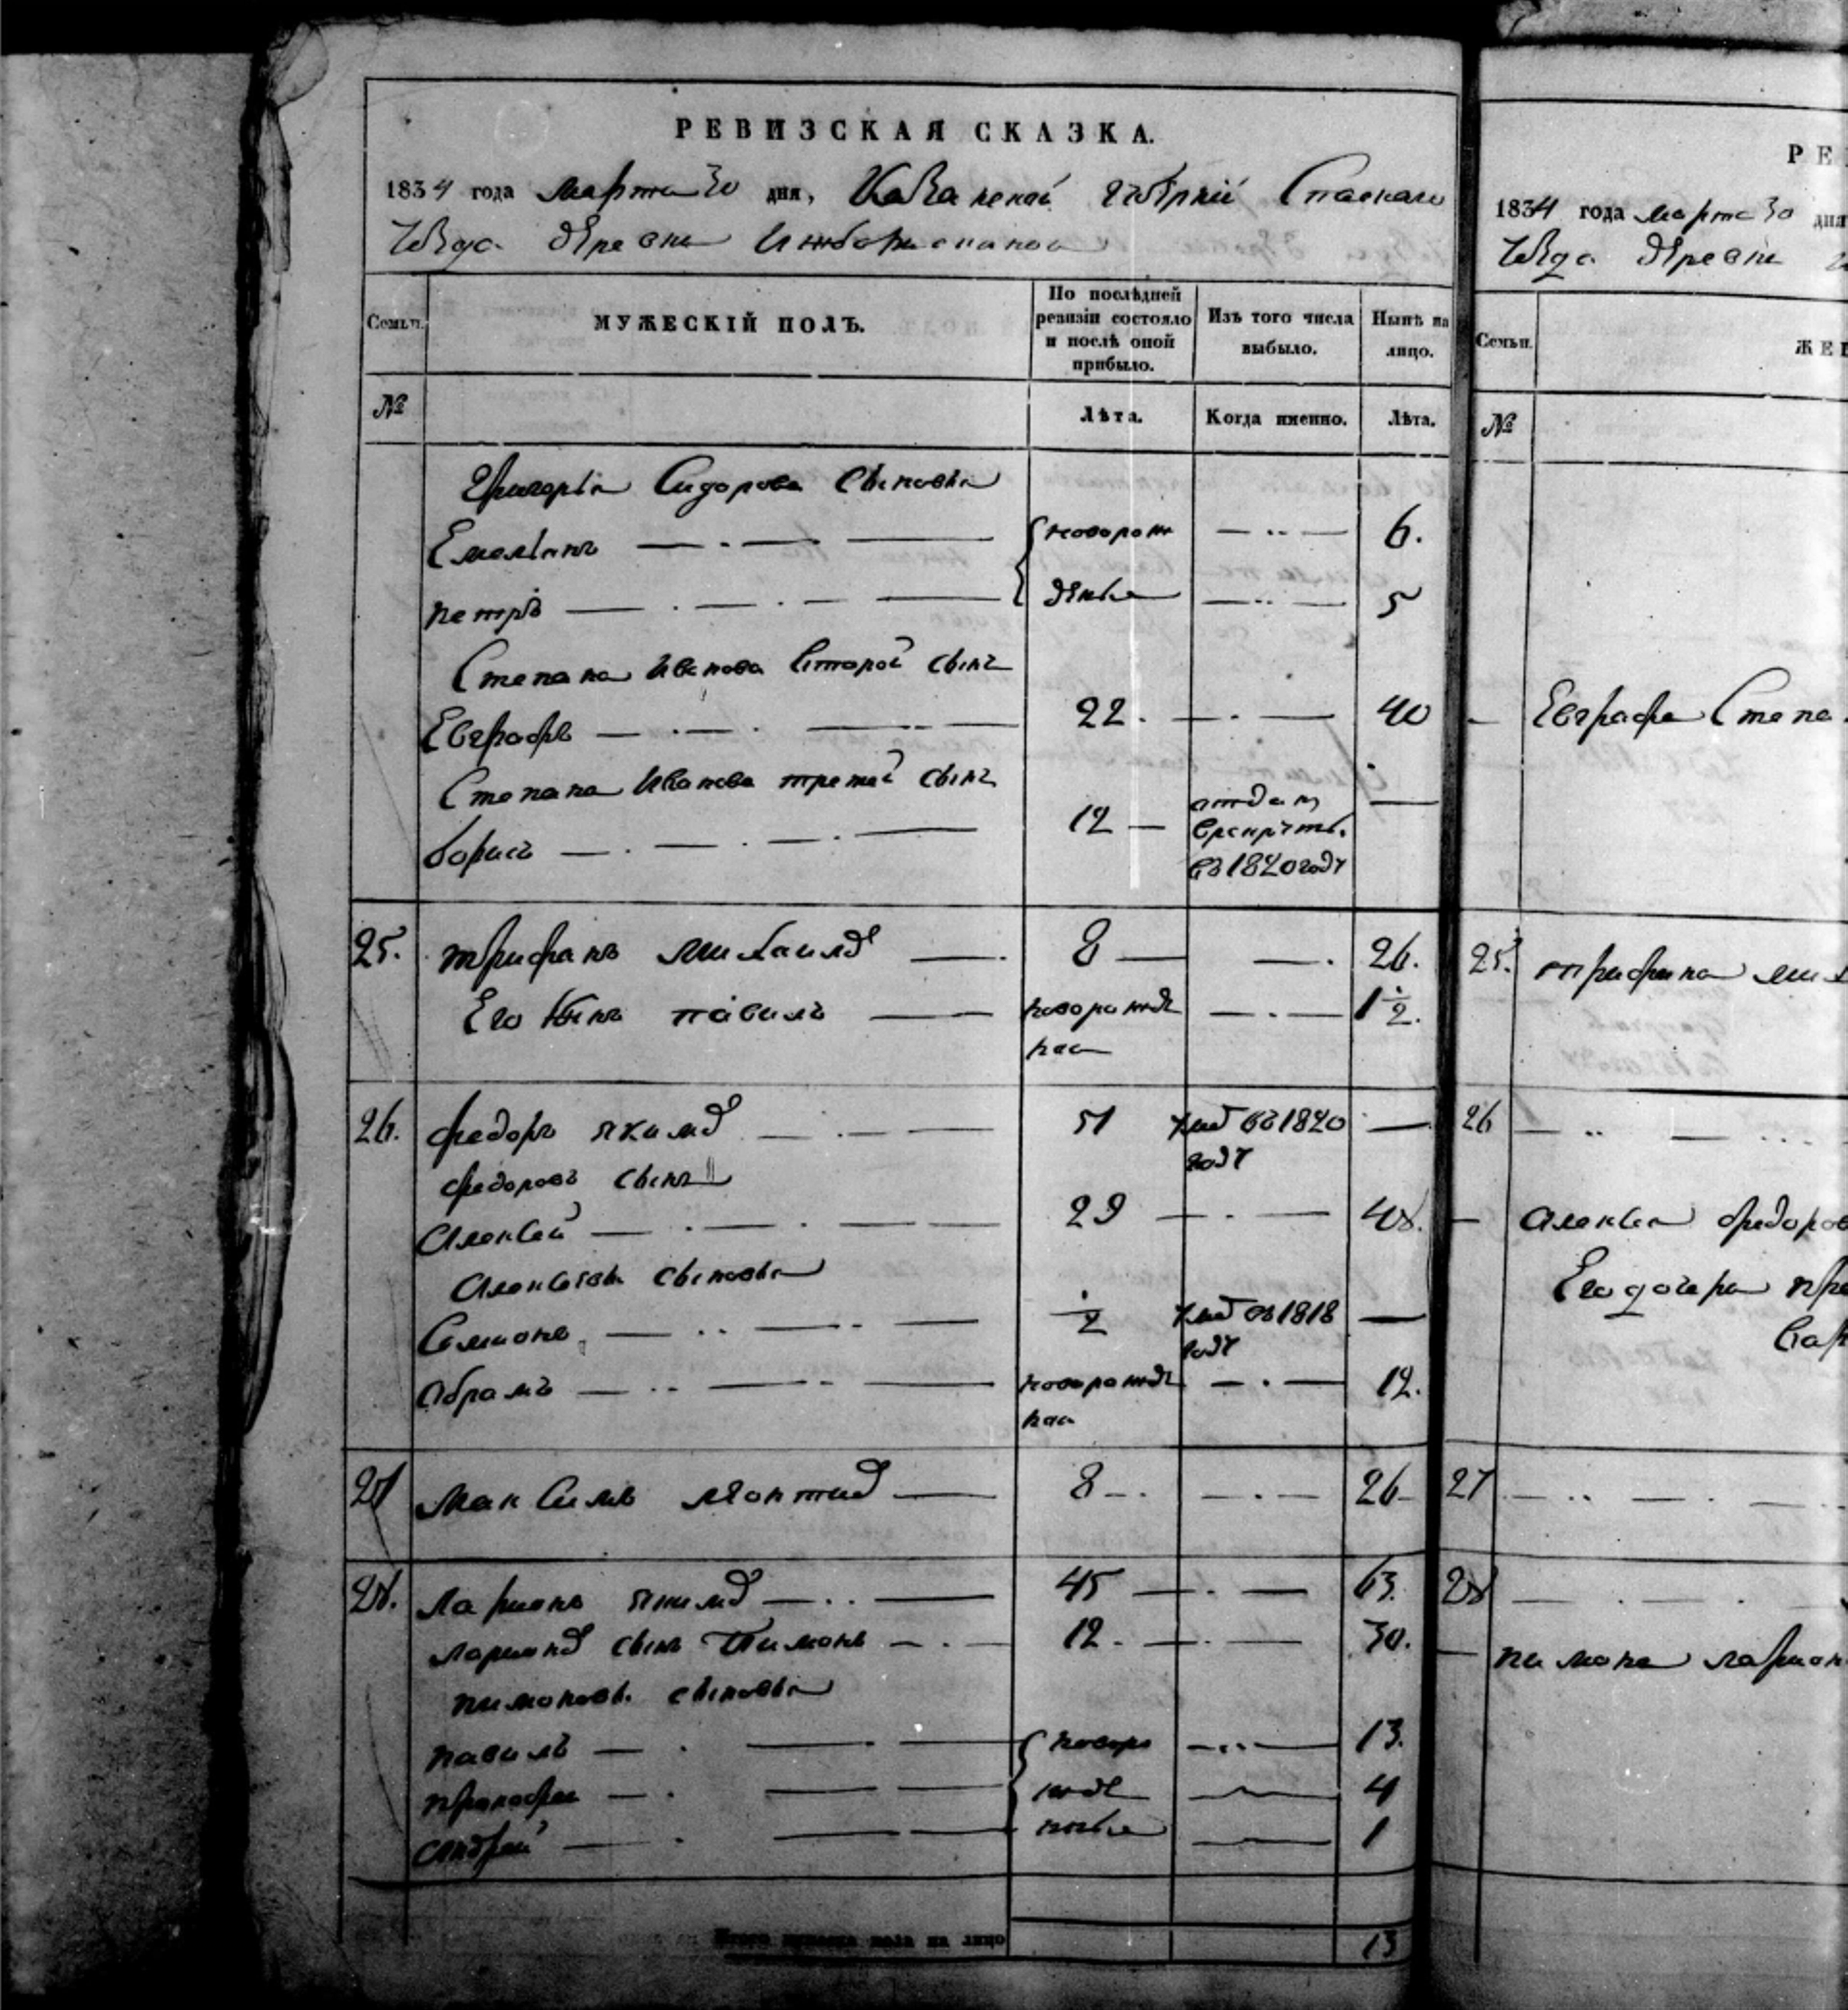 РЕВИЗСКАЯ СКАЗКА.
1834 года Марта 30 дня, Казанской губернiй Спаскаго
уѣзда деревни
Семьи.
МУЖЕСКІЙ ПОЛЪ.
По послѣдней ревизіи состояло и послѣ оной прибыло.
Изъ того числа выбыло.
Нынѣ на лицо.
№
Лѣта.
Когда именно.
Лѣта.
Григорья Сидорова сыновья
Емельянъ — новорож — 6.
петръ — денные — 5
Степана Иванова второй сынъ
Евграфъ — 22. — 40
Степана Иванова третей сынъ
борисъ — 12 — отданъ врекруты въ 1820 году —
25. трифанъ михаилов — 8 — 26.
Его сынъ павилъ — новорожде ная — 1 1/2.
26. федоръ якимов — 51 умер въ 1820 году —
федоровъ сынъ
Алексей — 29 — 48.
Алексеевы сыновья
Семионъ — 1/2 умер въ 1818 году —
Абрамъ — новорожде ная — 12.
27 Максимъ леонтив — 8 — 26
28. Ларионъ якимов — 45 — 63.
ларионов сынъ Пимонъ — 12. — 30.
пимоновы сыновья
павилъ — новоро — 13.
прокофеи — жде — 4
андрей — нные — 1
Итого мужеска пола на лицо 13
РЕ
1834 года марта 30 дня
уѣзда деревни
Семьи.
ЖЕ
№
— Евграфа Степа
25. трифона ми
26
— Алексея федоров
Его дочери
27
28
— пимона ларион